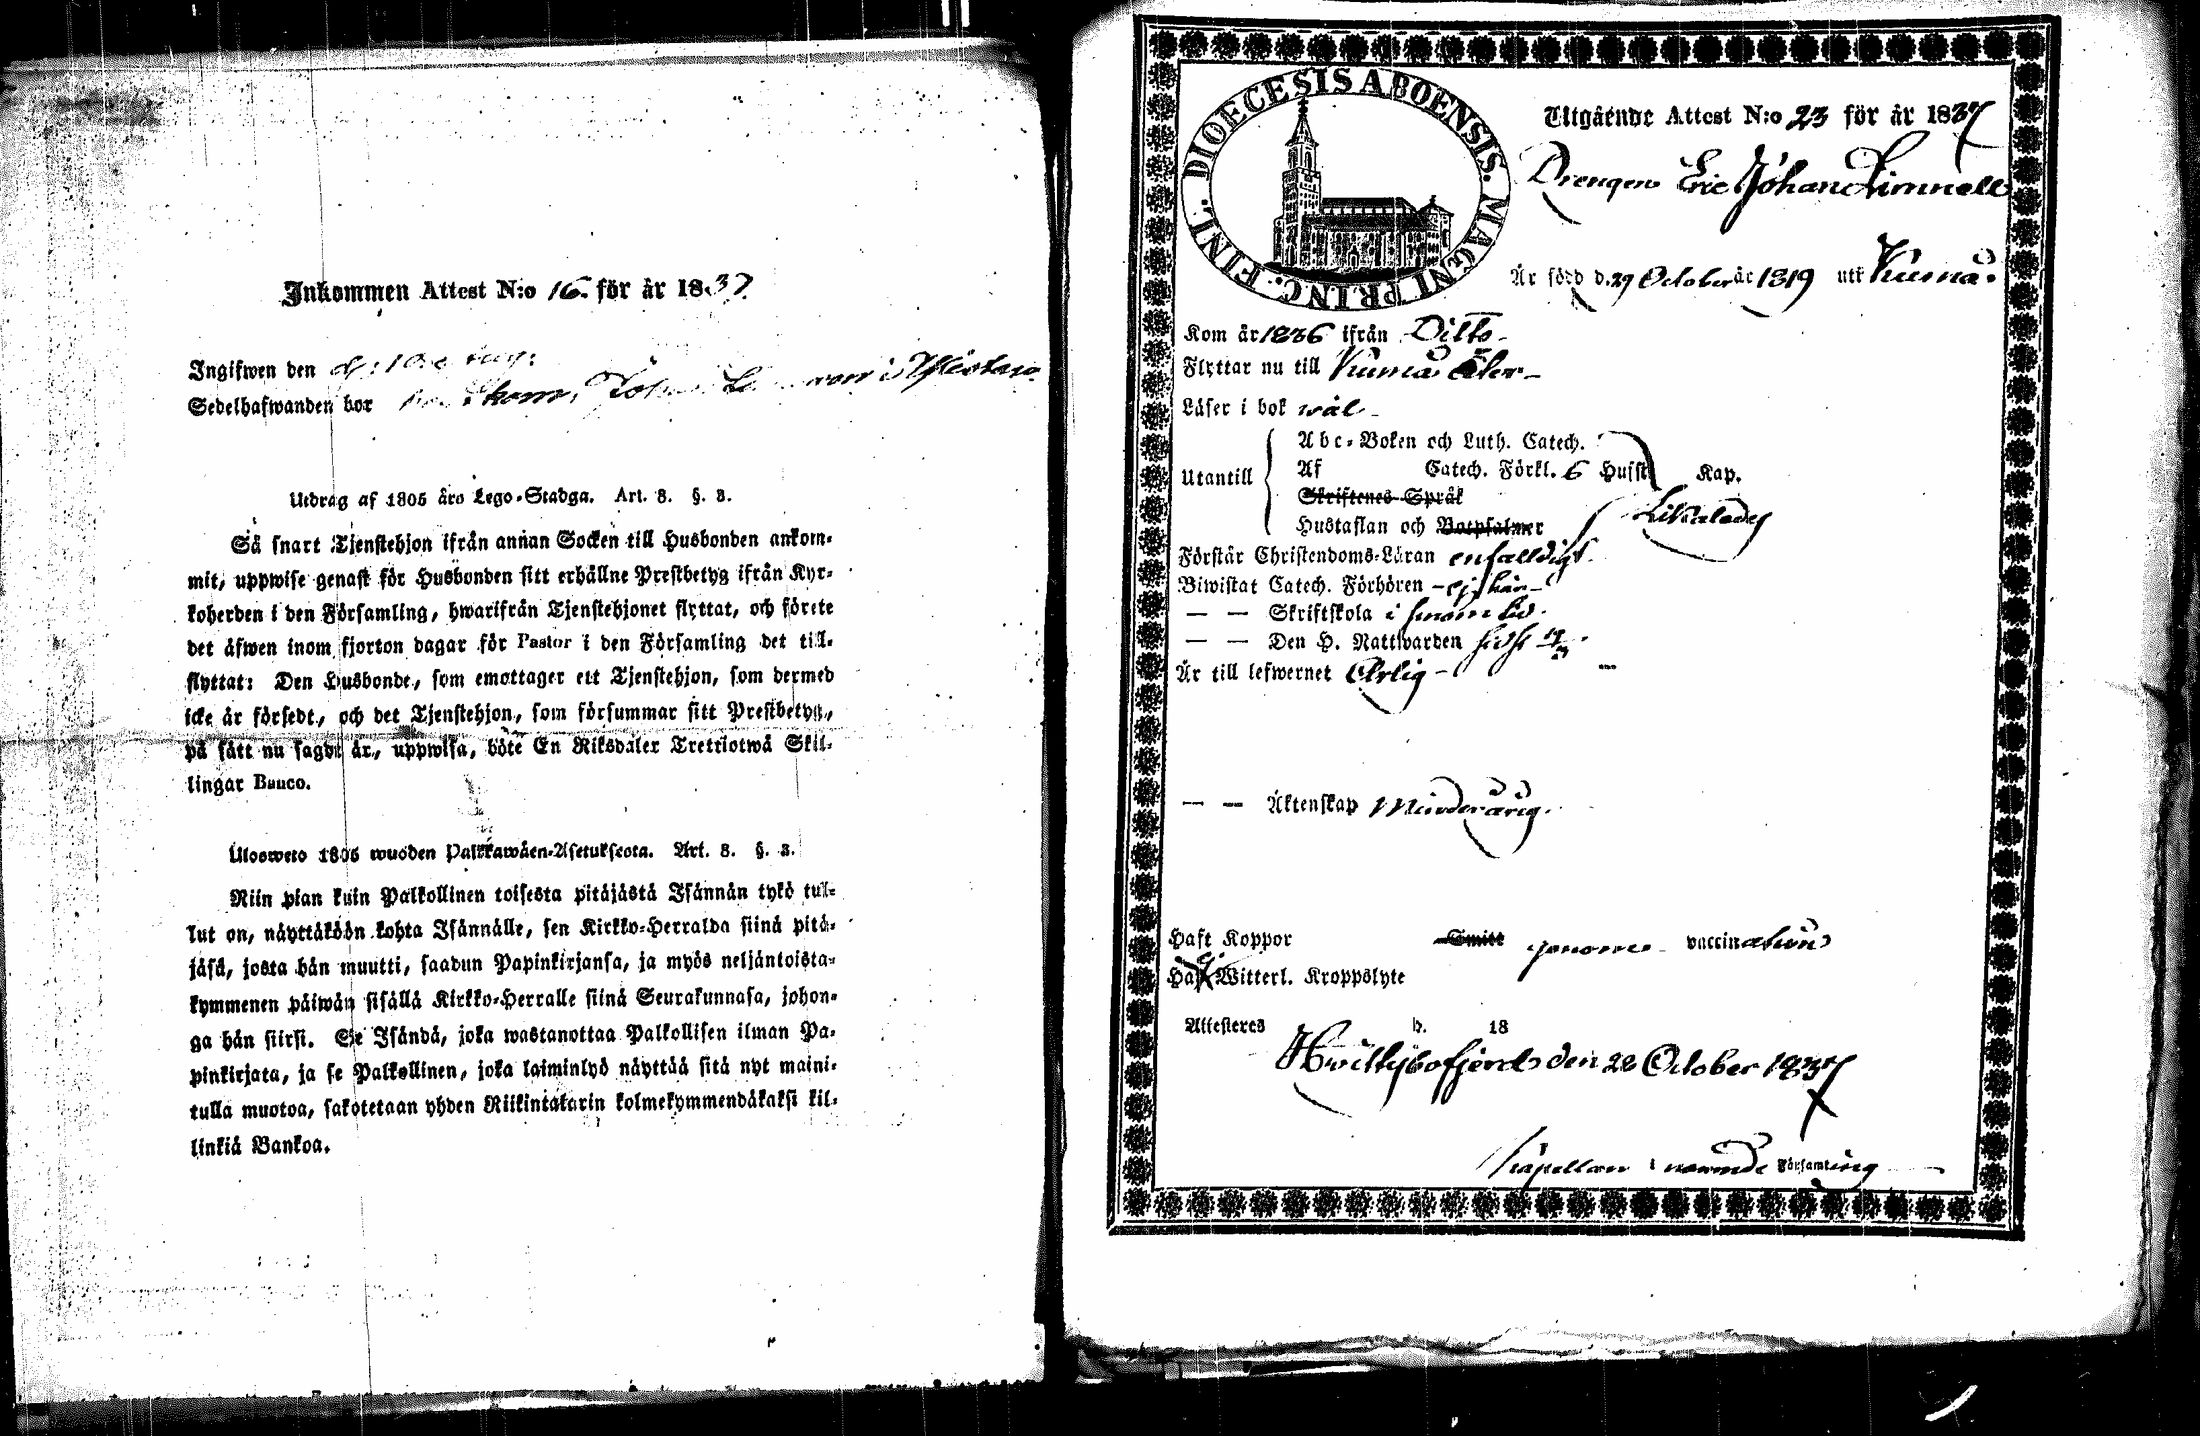 Inkommen Attest N:o 16. för år 1837.
Ingifwen den
Sedelhafwanden bor
Utdrag af 1805 års Lego-Stadga. Art. 3. §. 3.
Så snart Tjenstehjon ifrån annan Socken till Husbonden ankom-
mit, uppwise genast för Husbonden sitt erhållne Prestbetyg ifrån Kyr-
koherden i den Församling, hwarifrån Tjenstehjonet flyttat, och förete
det äfwen inom fjorton dagar för Pastor i den Församling det till-
flyttat: Den Husbonde, som emottager ett Tjenstehjon, som dermed
icke är försedt, och det Tjenstehjon, som försummar sitt Prestbetyg,
på sätt nu sagdt är, uppwisa, böte En Riksdaler Trettiotwå Skil-
lingar Banco.
Ulosweto 1805 wuoden Palkkawäen-Asetuksesta. Art. 3. §. 3.
Niin pian kuin Palkollinen toisesta pitäjästä Isännän tykö tul-
lut on, näyttäköön kohta Isännälle, sen Kirkko-Herralda siinä pitä-
jäsä, josta hän muutti, saadun Papinkirjansa, ja myös neljäntoista-
kymmenen päiwän sisällä Kirkko-Herralle siinä Seurakunnasa, johon-
ga hän siirsi. Se Isändä, joka wastanottaa Palkollisen ilman Pa-
pinkirjata, ja se Palkollinen, joka laiminlyö näyttää sitä nyt maini-
tulla muotoa, sakotetaan yhden Riikintalarin kolmekymmendäkaksi kil-
linkiä Bankoa.
DIOECESIS ABOENSIS. MAGNI PRINC. FINL.
Utgående Attest N:o 23 för år 1837
Drengen Eric Johan Limnell
Är född d. 29 October år 1819 uti Kumå.
Kom år 1836 ifrån Ditto
Flyttar nu till Kumå åter
Läser i bok wäl
Utantill
Abc-Boken och Luth. Catech.
Af Catech. Förkl. 6 Husst Kap.
Skriftenes Språk
Hustaflan och Botpsalmer
Förstår Christendoms-Läran enfalldigt
Biwistat Catech. Förhören ej här
— — Skriftskola i sinom tid.
— — Den H. Nattwarden sidst
Är till lefwernet Ärlig
— — Äktenskap Minderårig.
Haft Koppor Smitt genom vaccination
Haft ej Witterl. Kroppslyte
Attesteres d. 18
Hwittisbofjerd den 28 October 1837
Capellan i nämnde Församling